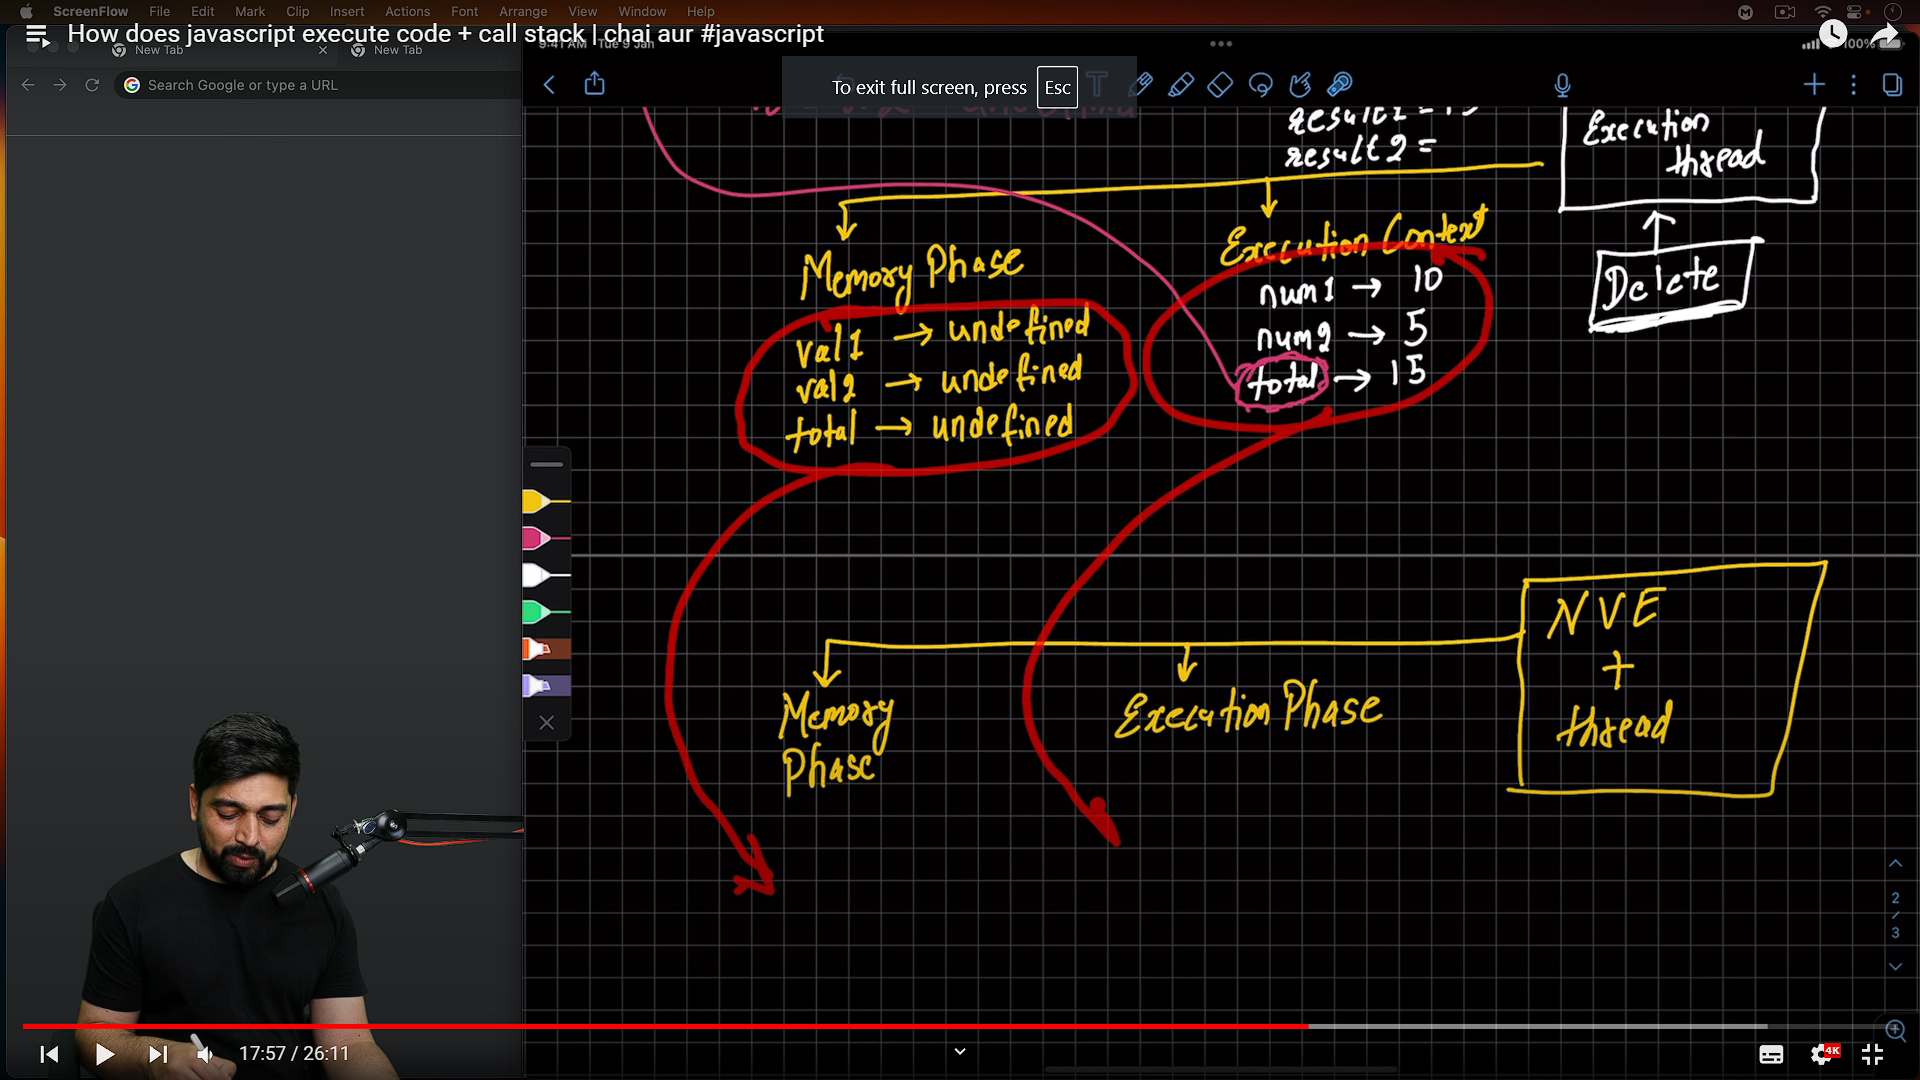 ScreenFlow File Edit Mark Clip Insert Actions Font Arrange View Window Help
How does javascript execute code + call stack | chai aur #javascript
New Tab
New Tab
9:41 AM Tue 9 Jan
100%
Search Google or type a URL
To exit full screen, press Esc
result 2 =
Execution
thread
Delete
Memory Phase
val1 → undefined
val2 → undefined
total → undefined
Execution Context
num1 → 10
num2 → 5
total → 15
NVE
+
thread
Memory
Phase
Execution Phase
2
/
3
17:57 / 26:11
4K